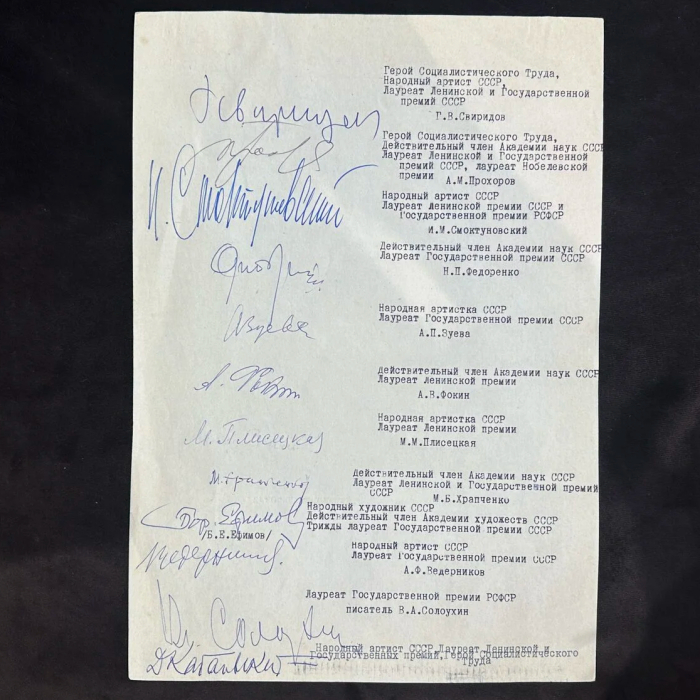 Герой Социалистического Труда,
Народный артист СССР,
Лауреат Ленинской и Государственной
премий СССР
Г.В.Свиридов
Герой Социалистического Труда,
Действительный член Академии наук СССР
Лауреат Ленинской и Государственной
премий СССР, лауреат Нобелевской
премии
А.М.Прохоров
И. Смоктуновский
Народный артист СССР
Лауреат Ленинской премии СССР и
Государственной премии РСФСР
И.М.Смоктуновский
Действительный член Академии наук СССР
Лауреат Государственной премии СССР
Н.П.Федоренко
АЗуева
Народная артистка СССР
Лауреат Государственной премии СССР
А.П.Зуева
Действительный член Академии наук СССР
Лауреат Ленинской премии
А.В.Фокин
М.Плисецкая
Народная артистка СССР
Лауреат Ленинской премии
М.М.Плисецкая
Действительный член Академии наук СССР
Лауреат Ленинской и Государственной премий
СССР
М.Б.Храпченко
Бор. Ефимов
/Б.Е.Ефимов/
Народный художник СССР
Действительный член Академии художеств СССР
Трижды лауреат Государственной премии СССР
Народный артист СССР
Лауреат Государственной премии СССР
А.Ф.Ведерников
Лауреат Государственной премии РСФСР
писатель В.А.Солоухин
Вл. Солоухин
Народный артист СССР,Лауреат Ленинской и
Государственных премий,Герой Социалистического
Труда